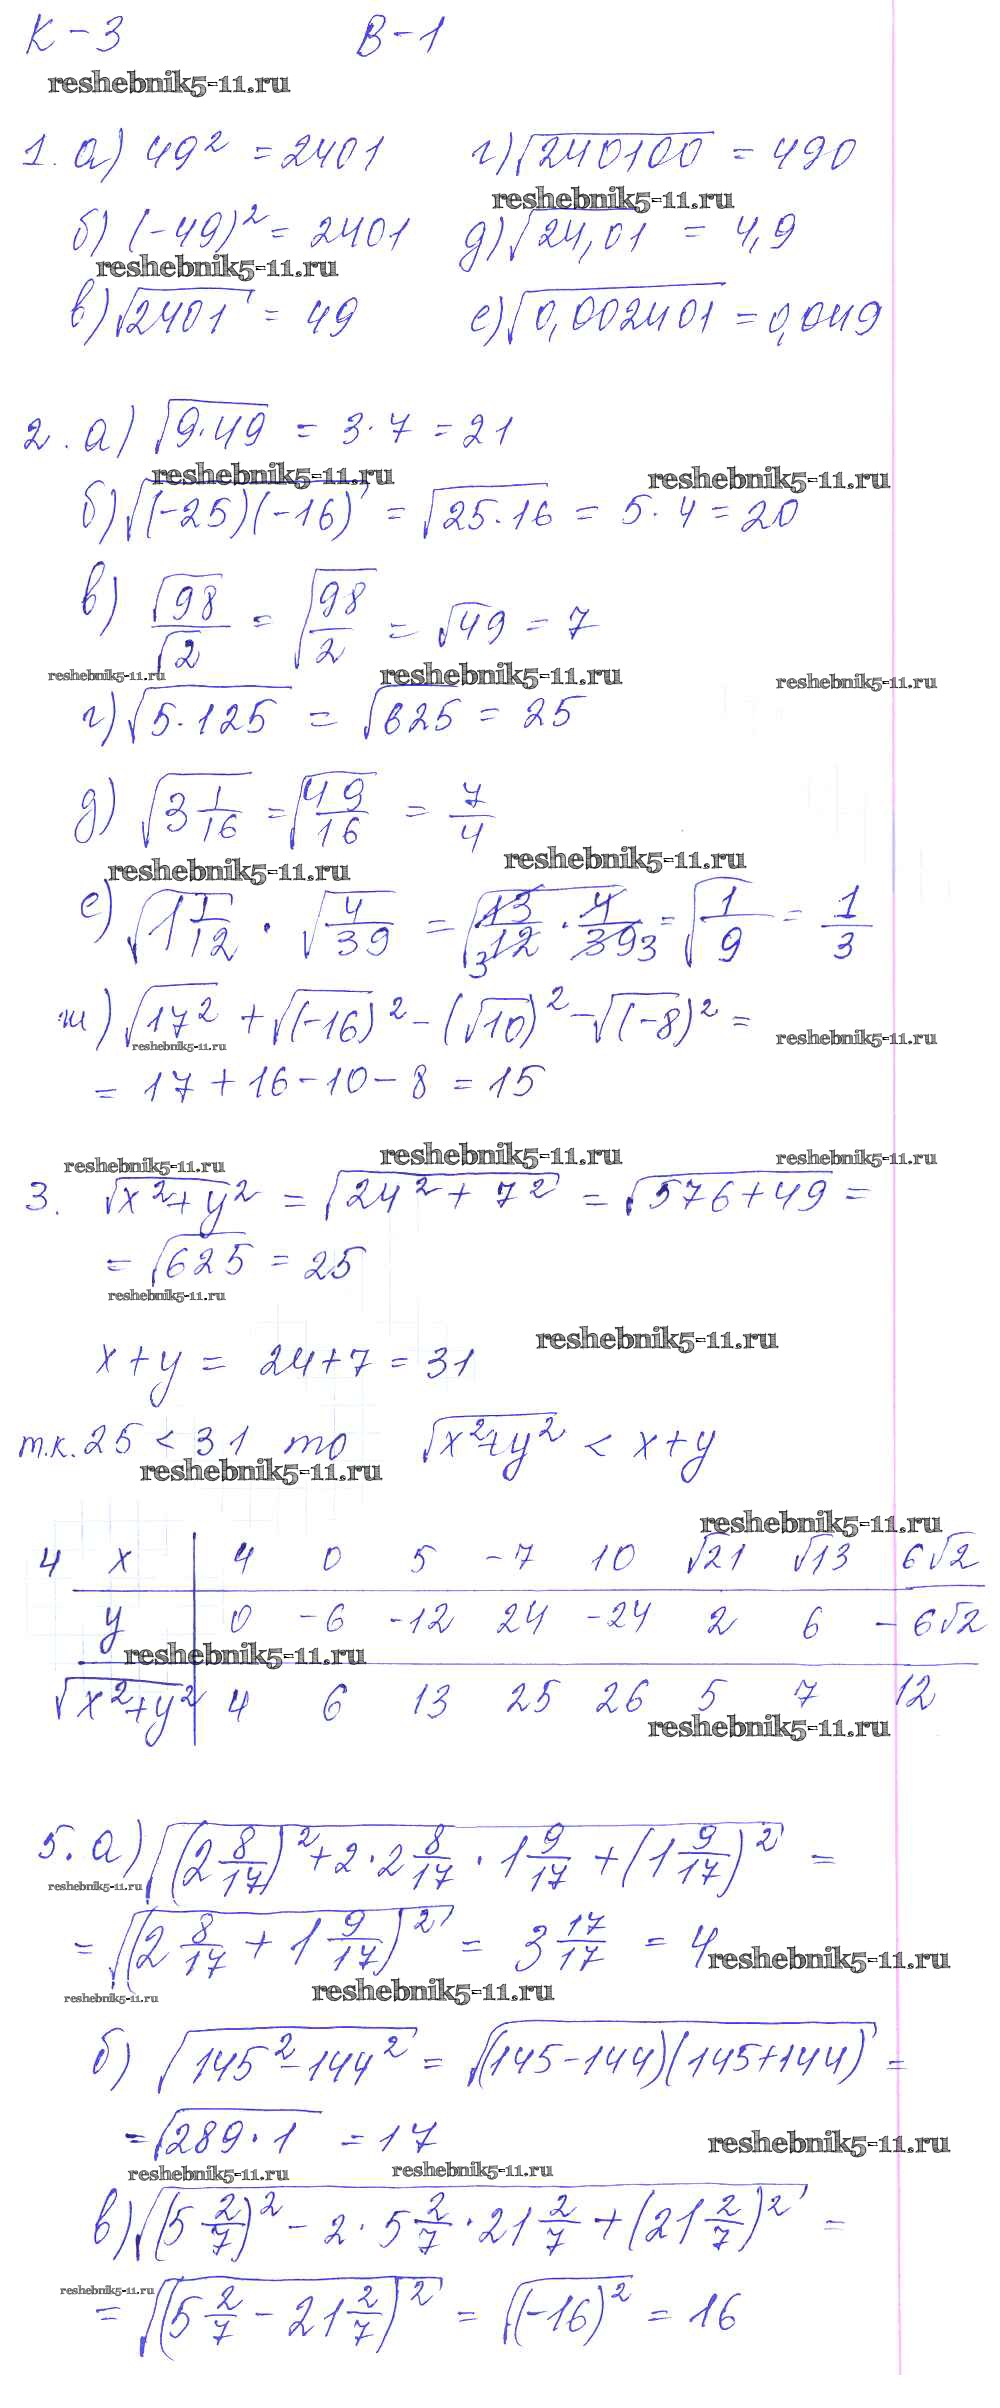 К-3 В-1
reshebnik5-11.ru
1. а) 49² = 2401 г) √240100 = 490
reshebnik5-11.ru
б) (-49)² = 2401 д) √24,01 = 4,9
reshebnik5-11.ru
в) √2401 = 49 е) √0,002401 = 0,049
2. а) √9·49 = 3·7 = 21
reshebnik5-11.ru reshebnik5-11.ru
б) √(-25)(-16) = √25·16 = 5·4 = 20
в) √98/√2 = √98/2 = √49 = 7
reshebnik5-11.ru reshebnik5-11.ru reshebnik5-11.ru
г) √5·125 = √625 = 25
д) √3 1/16 = √49/16 = 7/4
reshebnik5-11.ru reshebnik5-11.ru
е) √1 1/12 · √4/39 = √13/12 3 · 4/39 3 = √1/9 = 1/3
ж) √17² + √(-16)² - (√10)² - √(-8)² =
reshebnik5-11.ru reshebnik5-11.ru
= 17 + 16 - 10 - 8 = 15
reshebnik5-11.ru reshebnik5-11.ru reshebnik5-11.ru
3. √x²+y² = √24² + 7² = √576+49 =
= √625 = 25
reshebnik5-11.ru
reshebnik5-11.ru
x + y = 24+7 = 31
т.к. 25 < 31 то √x²+y² < x+y
reshebnik5-11.ru
reshebnik5-11.ru
4 x 4 0 5 -7 10 √21 √13 6√2
y 0 -6 -12 24 -24 2 6 -6√2
reshebnik5-11.ru
√x²+y² 4 6 13 25 26 5 7 12
reshebnik5-11.ru
5. а) √(2 8/17)² + 2·2 8/17 · 1 9/17 + (1 9/17)² =
reshebnik5-11.ru
= √(2 8/17 + 1 9/17)² = 3 17/17 = 4
reshebnik5-11.ru
reshebnik5-11.ru reshebnik5-11.ru
б) √145² - 144² = √(145-144)(145+144) =
= √289·1 = 17
reshebnik5-11.ru
reshebnik5-11.ru reshebnik5-11.ru
в) √(5 2/7)² - 2·5 2/7 · 21 2/7 + (21 2/7)² =
reshebnik5-11.ru
= √(5 2/7 - 21 2/7)² = √(-16)² = 16